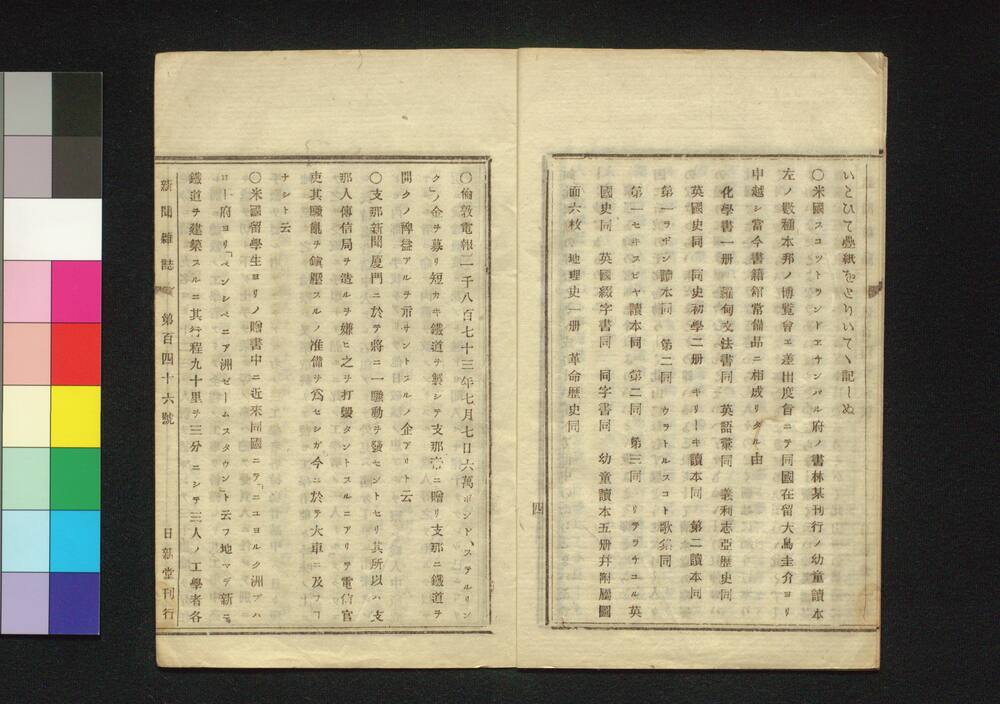 いとひて疊紙をとりいてヽ記しぬ
〇米國スコツトランドヱヤンバル府ノ書林某刊行ノ幼童讀本
左ノ數種本邦ノ博覧會エ差出度旨ニテ同國在留大鳥圭介ヨリ
申越シ當今書籍館常備品ニ相成リタル由
化學書一册 羅甸文法書同 英語彙同 義利志亞歴史同
英國史同 同史初學二册 キリーキ讀本同 第二讀本同
第一ラポン讀本同 第二同 ウヲトルスコト歌集同
第一セキスピヤ讀本同 第二同 第三同 リヲラケコル英
國史同 英國綴字書同 同字書同 幼童讀本五册并附屬圖
面六枚 地理史一册 革命歴史同
四
〇倫敦電報二千八百七十三年七月七日六萬ポンド、ステルリン
ク」ノ金ヲ募リ短カキ鐵道ヲ製シテ支那帝ニ贈リ支那ニ鐵道ヲ
開クノ裨益アルヲ示サントスルノ企アリト云
〇支那新聞厦門ニ於テ將ニ一騷動ヲ發セントセリ其所以ハ支
那人傳信局ヲ造ルヲ嫌ヒ之ヲ打毀タントスルニアリテ電信官
吏其騷亂ヲ鎮壓スルノ准備ヲ爲セシガ今ニ於テ大事ニ及フヿ
ナシト云
〇米國留學生ヨリノ贈書中ニ近來同國ニテ「ニユヨルク洲プハ
ロー府ヨリ「ペンシベニア洲ゼームスタウント云フ地マデ新ニ
鐵道ヲ建築スルニ其行程九十里ヲ三分ニシテ三人ノ工學者各
新聞雜誌 第百四十六號 日新堂刊行